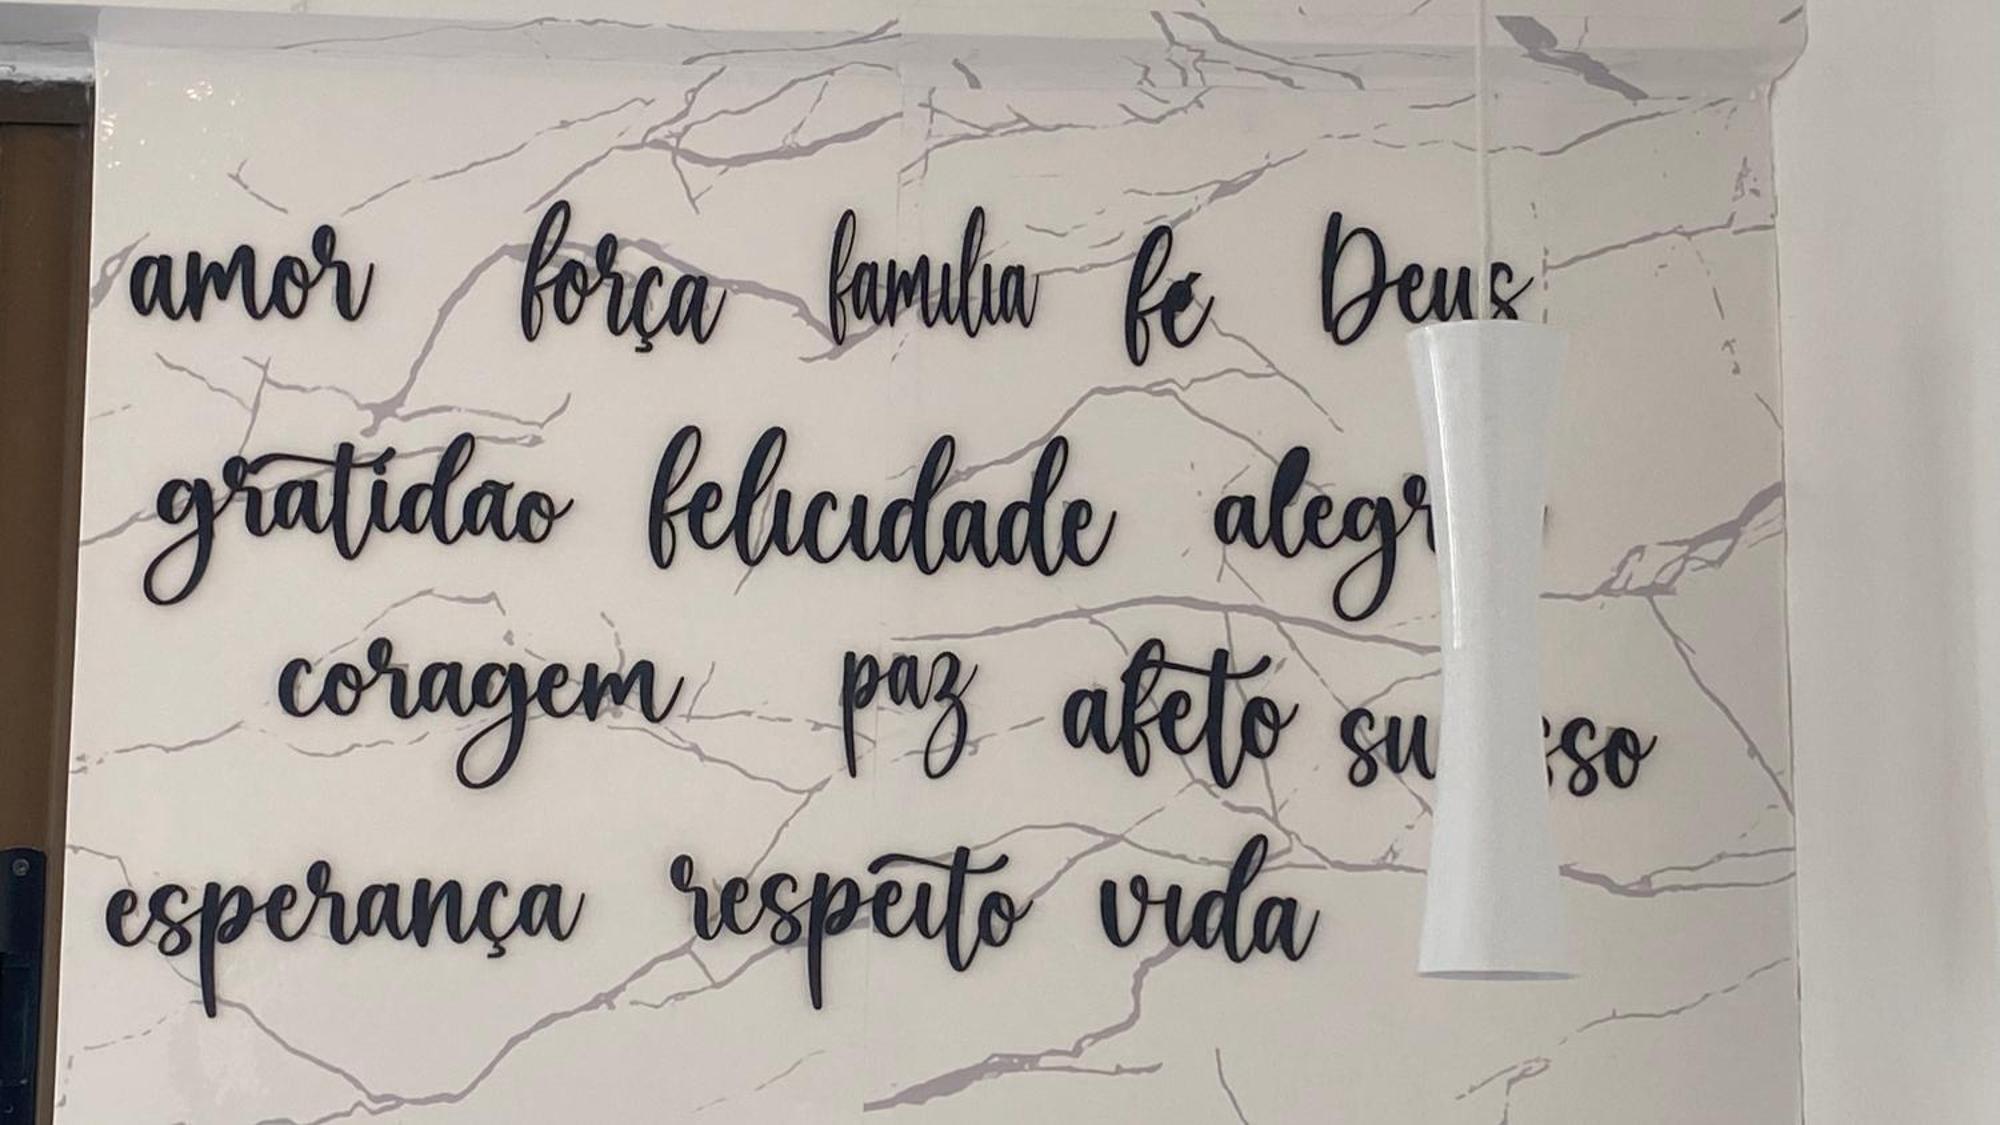 amor força família fé Deus
gratidão felicidade alegr
coragem paz afeto su sso
esperança respeito vida